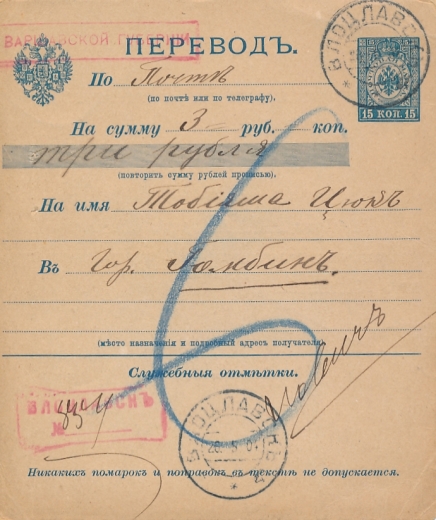 ВАРШАВСКОЙ ГУБЕРНИИ
ПЕРЕВОДЪ.
ВЛОЦЛАВСКЪ
15 КОП. 15
По Почтѣ
(по почтѣ или по телеграфу).
На сумму 3 руб. коп.
три рубля
(повторить сумму рублей прописью).
На имя Тобіяша Цюкъ
Въ Гор. Гомбинъ.
(мѣсто назначенія и подробный адресъ получателя).
Служебныя отмѣтки.
№
ВЛОЦЛАВСКЪ
Никакихъ помарокъ и поправокъ въ текстѣ не допускается.